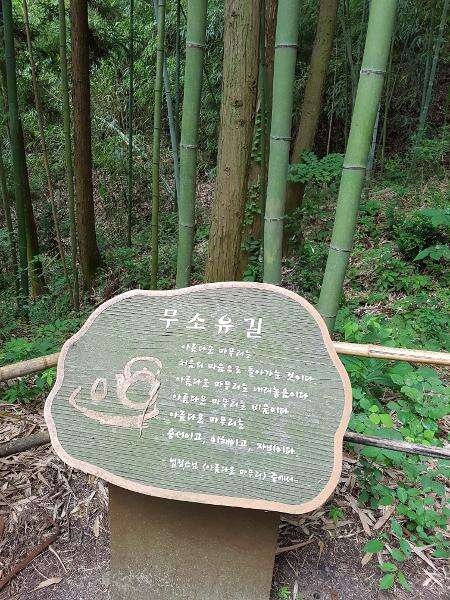 무소유길
아름다운 마무리는
처음의 마음으로 돌아가는 것이다.
아름다운 마무리는 내려놓음이다.
아름다운 마무리는 비움이다.
아름다운 마무리는
용서이고, 이해이고, 자비이다.
법정스님 (아름다운 마무리) 중에서.